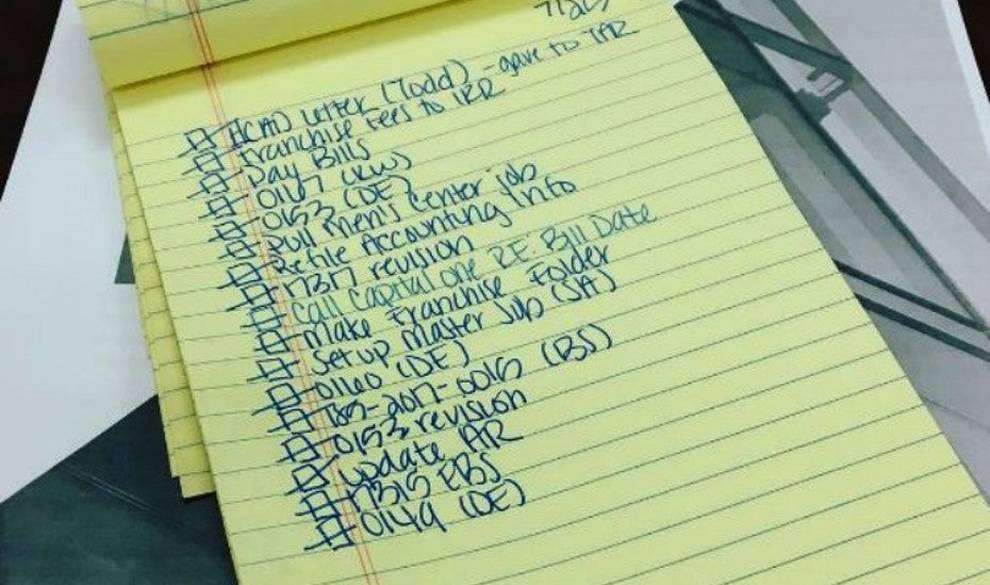 7/25
HCAD Letter (Todd) - gave to
Franchise Fees to IRR
Pay Bills
0167 (KW)
0153 (DE)
Pull Men's Center job
Refile Accounting Info
17317 revision
Call Capital One RE: Bill Date
Make Franchise Folder
Set up Master Job (SA)
01160 (DE)
785-2017-0016 (BS)
0153 revision
Update AR
17315 EBS
0149 (DE)